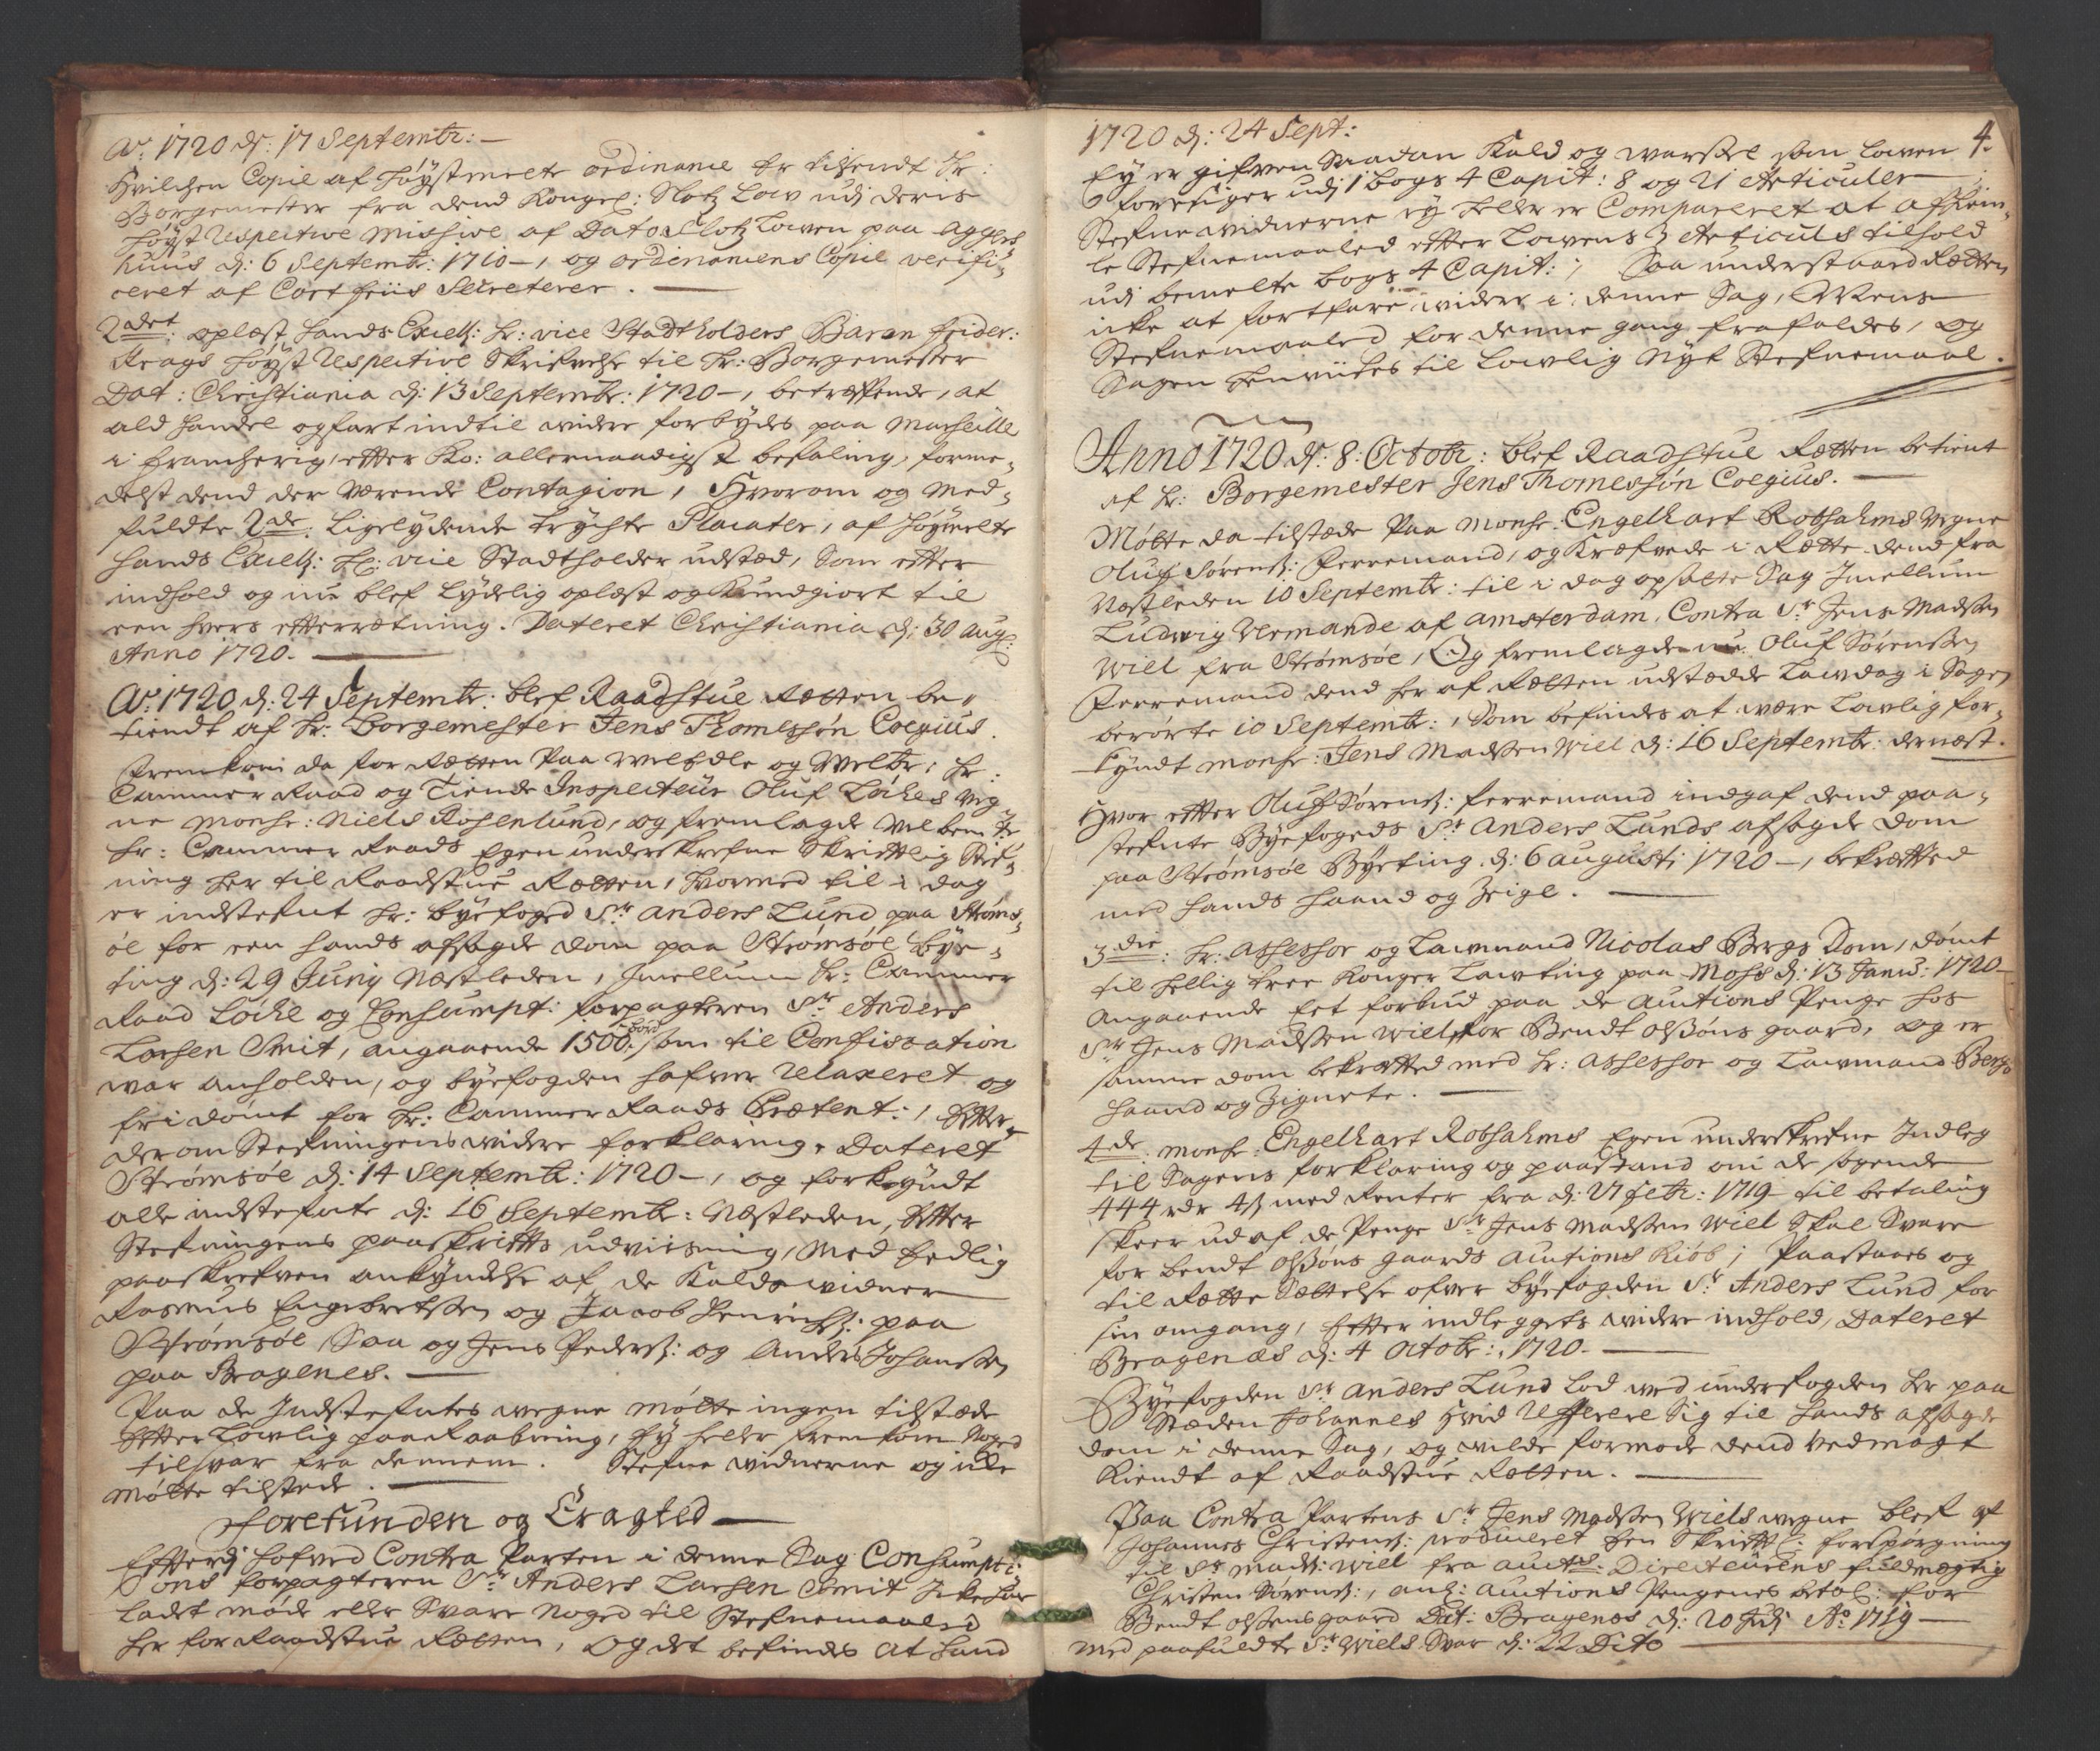 Ao: 1720 d: 17 Septembr: —
Hvilchen Copie af høystmelte ordinance er tilsendt Hr:
Borgemester fra dend Kongel: Slotz Low udi deris
høyst respective missive af Dato Slotz Lowen paa Aggers
huus d: 6 Septembr: 1710 —, og ordinancens Copie verifi-
ceret af Cort Friis Secreterer. —
2det: oplæst hands Excell: Hr: vice Stadtholders Baron Frider:
Krags høyst respective Skrifvelse til Hr: Borgemester
Dat: Christiania d: 13 Septembr: 1720 —, betræffende, at
ald handel og fart indtil widere forbydes paa Marseille
i Francherig, efter Ko: allernaadigst befaling, forme-
delst dend der værende Contagion, Hvorom og med-
fuldte 2de ligelydende trygte Placater, af høymelte
hands Excell: Hr: vice Stadtholder udsted, som efter
indhold og nu blef lydelig oplæst og kundgiort til
een hvers efterrætning. Dateret Christiania d: 30 Aug:
Anno 1720. —
Ao: 1720 d: 24 Septembr: blef Raadstue Rætten be-
tiendt af Hr: Borgemester Jens Thomessøn Coegius.
Fremkom da for Rætten paa welEdle og Welbr: Hr:
Cammer Raad og Tiende Inspecteur Oluf Løches veg-
ne Monsr: Niels Rosenlund, og fremlagde Velbemte
Hr: Cammer Raads Egen underskrefne Skriftlig Stef-
ning her til Raadstue Rætten, hvormed til i dag
er indstefnt Hr: byefoged Sr Anders Lund paa Strøms-
øe for een hands afsagde dom paa Strømsøe bye-
ting d: 29 Juny næstleden, Imellum Hr: Cammer
Raad Løche og Consumpt: forpagteren Sr Anders
Larsen Smit, angaaende 1500 bord som til Confiscation
war anholden, og byefogden hafver relaxeret og
fri dømt for Hr: Cammer Raads Prætent:, Efter-
der om Stefningens widere forklaring. Dateret
Strømsøe d: 14 Septembr: 1720 —, og forkyndt
alle indstefnte d: 16 Septembr: Næstleden, Efter
Stefningens paaskrifts udviisning, med Eedlig
paaskrefven ankyndelse af de Kaldswidner
Rasmus Engebretssen og Jacob Henrichs: paa
Strømsøe Saa og Jens Peders: og Anders Johanssen
paa Bragenes. —
Paa de Indstefntes wegne mødte ingen tilstæde
Efter Lowlig paaRaabning, Ey heller fremkom noged
tilsvar fra dennem. Stefne widnerne og icke
mødte tilstede. —
Forefunden og Eragted —
Efterdj hofved Contra Parten i denne Sag Consumpti-
ons forpagteren Sr Anders Larsen Smit Icke har
ladet møde eller Svare noged til Stefnemaaled
her for Raadstue Rætten, og det befindes at hand
1720 d: 24 Sept:
4.
Ey er gifven Saadan Kald og warssel som Lowen
foresiger udj 1 bogs 4 Capit: 8 og 21 Articuler
Stefnewidnerne ey heller er Compareret at afhiem-
le Stefnemaaled efter Lowens 3 Articuls tilhold
udi bemelte bogs 4 Capit:; Saa understaard Rætten
icke at fortfare widere i denne Sag, Mens
Stefnemaaled for denne gang frafaldes, og
Sagen henvises til Lowlig nyt Stefnemaal.
Anno 1720 d: 8: Octobr: blef Raadstue Rætten betient
af Hr: Borgemester Jens Thomessøn Coegius. —
Mødte da tilstæde paa Monsr: Engelhart Robsahms vegne
Oluf Sørens: Ferremand, og Kræfvede i Rætte dend fra
Næstleden 10 Septembr: til i dag opsatte Sag Imellum
Ludwig Uemande af Amsterdam, Contra Sr Jens Madssen
Wiel fra Strømsøe, Og fremlagde nu Oluf Sørenssen
Ferremand dend her af Rætten udstædde Lawdag i Sagen
berørte 10 Septembr:, som befindes at være Lowlig for-
kyndt Monsr: Jens Madssen Wiel d: 16 Septembr: dernæst.
Hvor efter Oluf Sørens: Ferremand indgaf dend paa-
stefnte Byefogeds Sr Anders Lunds afsagde dom
paa Strømsøe Byeting d: 6 Augusti 1720 —, bekræfted
med hands haand og Zeigl. —
3die: Hr: Assessor og Lawmand Nicolas Bergs Dom, dømt
til hellig tree Konger Lawting paa Moss d: 13 Janv: 1720
angaaende Eet forbud paa de Auctions Penge hos
Sr Jens Madssen Wiel for Bendt olssøns gaard, og er
samme dom bekræfted med Hr: Assessor og Lawmand Bergs
haand og Zignete. —
4de: Monsr: Engelhart Robsahms Egen underskrefne Indleg
til Sagens forklaring og paastand om de søgende
444 rdr 4 s med Renter fra d: 27 febr: 1719 til betaling
skeer ud af de Penge Sr Jens Madssen Wiel skal Svare
for bendt olssøns gaards Auctions Kiøb; Paastaaes og
til Rætte Sættelse ofver byefogden Sr Anders Lund for
sin omgang, Efter indleggets widere indhold, Dateret
Bragenæs d: 4 Octobr: 1720. —
Byefogden Sr Anders Lund lod ved underfogden her paa
Stæden Johannes Hvid referere Sig til hands afsagde
dom i denne Sag, og wilde formode dend ved magt
Kiendt af Raadstue Rætten. —
Paa Contra Partens Sr Jens Madssen Wiels wegne blef af
Johannes Christens: produceret Een Skriftl: forspørgning
til Sr Mads: Wiel fra auct: Directeurens fuldmægtig
Christen Sørens:, ang: Auctions Pengenes betal: for
Bendt olssens gaard Dat: Bragenæs d: 20 Julj Ao 1719 —
med paafuldte Sr Wiels Svar d: 22 Dito —